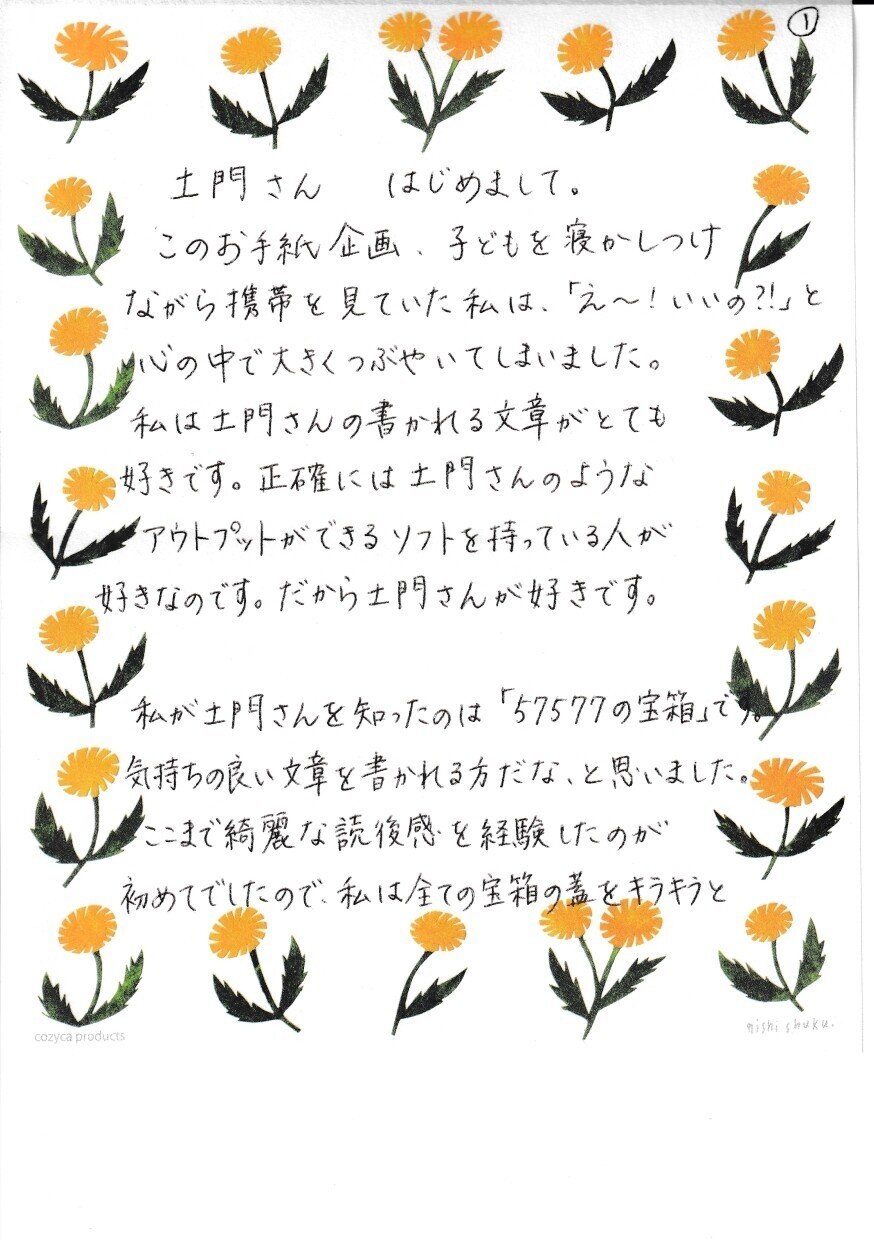 ①
土門さん　はじめまして。
このお手紙企画、子どもを寝かしつけ
ながら携帯を見ていた私は、「え〜！いいの?!」と
心の中で大きくつぶやいてしまいました。
私は土門さんの書かれる文章がとても
好きです。正確には土門さんのような
アウトプットができるソフトを持っている人が
好きなのです。だから土門さんが好きです。
私が土門さんを知ったのは「57577の宝箱」です。
気持ちの良い文章を書かれる方だな、と思いました。
ここまで綺麗な読後感を経験したのが
初めてでしたので、私は全ての宝箱の蓋をキラキラと
cozyca products
nishi shuku.